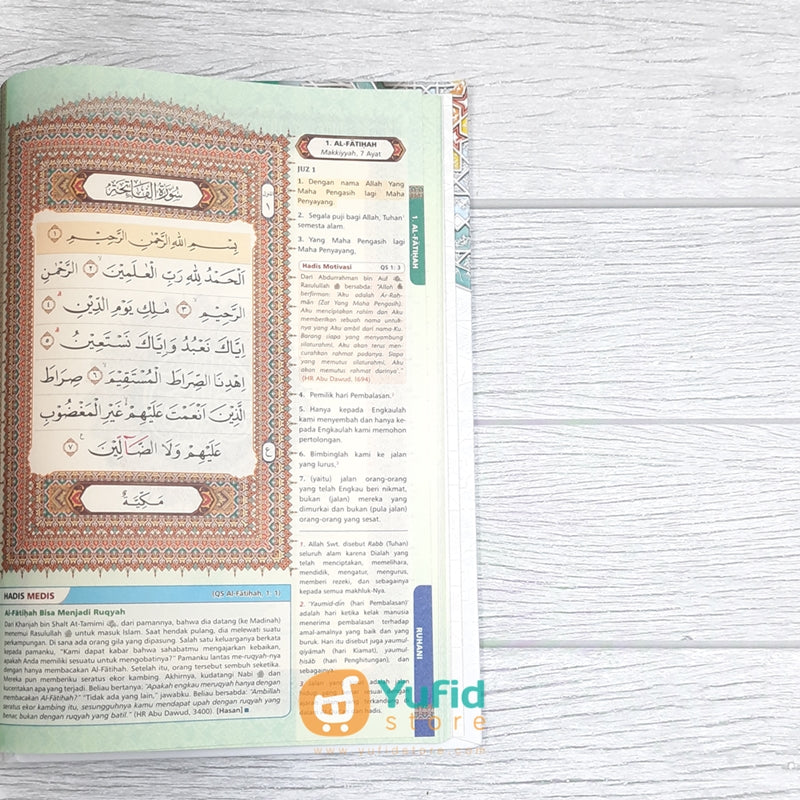 سُورَةُ الْفَاتِحَةِ
بِسْمِ اللّٰهِ الرَّحْمٰنِ الرَّحِيْمِ ١
اَلْحَمْدُ لِلّٰهِ رَبِّ الْعٰلَمِيْنَ ٢ الرَّحْمٰنِ
الرَّحِيْمِ ٣ مٰلِكِ يَوْمِ الدِّيْنِ ٤
اِيَّاكَ نَعْبُدُ وَاِيَّاكَ نَسْتَعِيْنُ ٥
اِهْدِنَا الصِّرَاطَ الْمُسْتَقِيْمَ ٦ صِرَاطَ
الَّذِيْنَ اَنْعَمْتَ عَلَيْهِمْ غَيْرِ الْمَغْضُوْبِ
عَلَيْهِمْ وَلَا الضَّاۤلِّيْنَ ٧
مَكِّيَّةٌ
١
ع
1. AL-FĀTIḤAH
Makkiyyah, 7 Ayat
JUZ 1
1. Dengan nama Allah Yang
Maha Pengasih lagi Maha
Penyayang.
2. Segala puji bagi Allah, Tuhan¹
semesta alam.
3. Yang Maha Pengasih lagi
Maha Penyayang,
Hadis Motivasi QS 1: 3
Dari Abdurrahman bin Auf,
Rasulullah ﷺ bersabda: "Allah
berfirman: 'Aku adalah Ar-Rah-
mān (Zat Yang Maha Pengasih).
Aku menciptakan rahim dan Aku
memberikan sebuah nama untuk-
nya yang Aku ambil dari nama-Ku.
Barang siapa yang menyambung
silaturahmi, Aku akan terus men-
curahkan rahmat padanya. Siapa
yang memutus silaturahmi, Aku
akan memutus rahmat darinya'."
(HR Abu Dawud, 1694)
4. Pemilik hari Pembalasan.²
5. Hanya kepada Engkaulah
kami menyembah dan hanya ke-
pada Engkaulah kami memohon
pertolongan.
6. Bimbinglah kami ke jalan
yang lurus,³
7. (yaitu) jalan orang-orang
yang telah Engkau beri nikmat,
bukan (jalan) mereka yang
dimurkai dan bukan (pula jalan)
orang-orang yang sesat.
1. Allah Swt. disebut Rabb (Tuhan)
seluruh alam karena Dialah yang
telah menciptakan, memelihara,
mendidik, mengatur, mengurus,
memberi rezeki, dan sebagainya
kepada semua makhluk-Nya.
2. 'Yaumid-dīn (hari Pembalasan)
adalah hari ketika kelak manusia
menerima pembalasan terhadap
amal-amalnya yang baik dan yang
buruk. Hari itu disebut juga yaumul-
qiyāmah (hari Kiamat), yaumul-
ḥisāb (hari Penghitungan), dan
sebagainya.
3. Jalan yang
dan hadis.
1. AL-FĀTIḤAH
RUHANI
HADIS MEDIS (QS Al-Fātiḥah, 1: 1)
Al-Fātiḥah Bisa Menjadi Ruqyah
Dari Kharijah bin Shalt At-Tamimi, dari pamannya, bahwa dia datang (ke Madinah)
menemui Rasulullah ﷺ untuk masuk Islam. Saat hendak pulang, dia melewati suatu
perkampungan. Di sana ada orang gila yang dipasung. Salah satu keluarganya berkata
kepada pamanku, "Kami dapat kabar bahwa sahabatmu mengajarkan kebaikan,
apakah Anda memiliki sesuatu untuk mengobatinya?" Pamanku lantas me-ruqyah-nya
dengan hanya membacakan Al-Fātiḥah. Setelah itu, orang tersebut sembuh seketika.
Mereka pun memberiku seratus ekor kambing. Akhirnya, kudatangi Nabi ﷺ dan
kuceritakan apa yang terjadi. Beliau bertanya: "Apakah engkau meruqyah hanya dengan
membacakan Al-Fātiḥah?" "Tidak ada yang lain," jawabku. Beliau bersabda: "Ambillah
seratus ekor kambing itu, sesungguhnya kamu mendapat upah dengan ruqyah yang
benar, bukan dengan ruqyah yang batil." (HR Abu Dawud, 3400). [Hasan]
Yufid
store
www.yufidstore.com